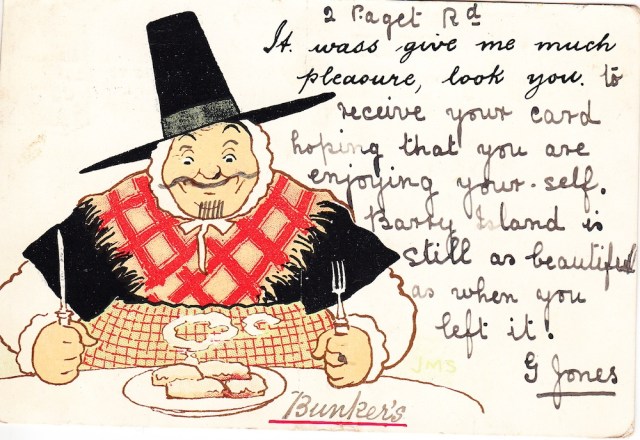 2 Paget Rd
It wass give me much
pleasure, look you. to
receive your card
hoping that you are
enjoying your-self.
Barry Island is
still as beautiful
as when you
left it!
G Jones
JMS
Bunker's